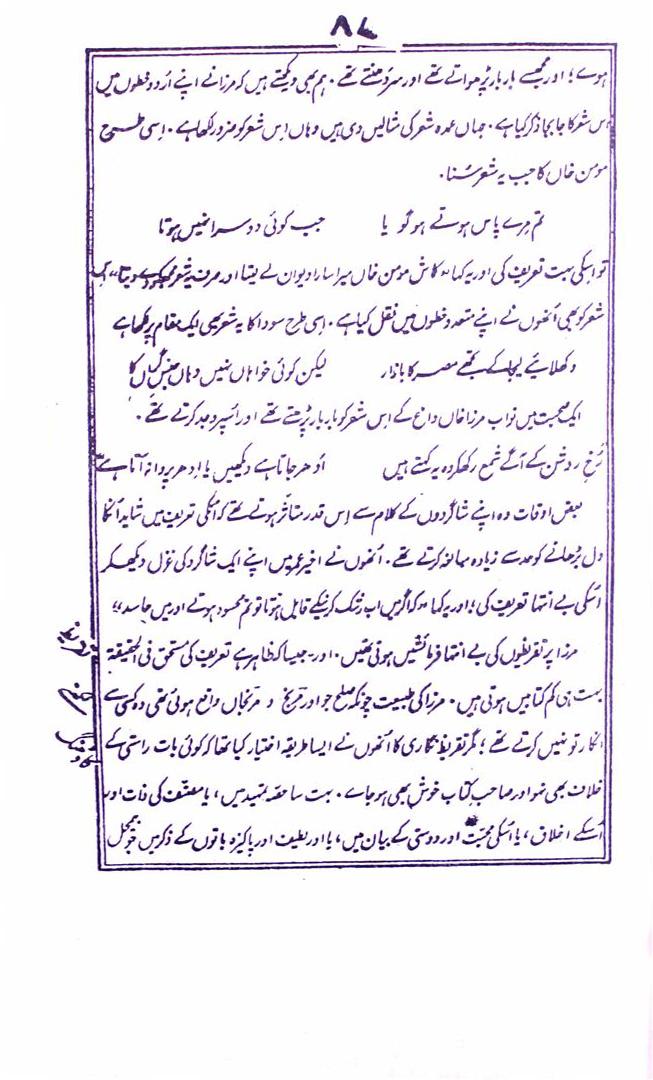 ۸۷
ہوے؛ اور مجھسے بار بار پڑھواتے تھے اور سر دُھنتے تھے۔ ہم بھی دیکھتے ہیں کہ مرزا نے اپنے اُردو خطوں میں
اس شعر کا جابجا ذکر کیا ہے۔ جہاں عمدہ شعر کی مثالیں دی ہیں وہاں اس شعر کو ضرور لکھا ہے۔ اِسی طرح
مومن خاں کا جب یہ شعر سُنا۔
تم مرے پاس ہوتے ہو گو یا جب کوئی دوسرا نہیں ہوتا
تو اسکی بہت تعریف کی اور یہ کہا "کاش مومن خاں میرا سارا دیوان لے لیتا اور صرف یہ شعر مجھکو دیدیتا" اس
شعر کو بھی اُنھوں نے اپنے متعدد خطوں میں نقل کیا ہے۔ اِسی طرح سودا کا یہ شعر بھی ایک مقام پر لکھا ہے
دکھلائیے لیجا کے تجھے مصر کا بازار لیکن کوئی خواہاں نہیں وہاں جنس گراں کا
ایک صحبت میں نواب مرزا خاں داغ کے اِس شعر کو بار بار پڑھتے تھے اور اُسپر وجد کرتے تھے۔
رُخِ روشن کے آگے شمع رکھکر وہ یہ کہتے ہیں اُدھر جاتا ہے دیکھیں یا اِدھر پروانہ آتا ہے
بعض اوقات وہ اپنے شاگردوں کے کلام سے اِس قدر متاثر ہوتے تھے کہ اُنکی تعریف میں شاید اُنکا
دل بڑھانے کو حد سے زیادہ مبالغہ کرتے تھے۔ اُنھوں نے اخیر عمر میں اپنے ایک شاگرد کی غزل دیکھکر
اُسکی بے انتہا تعریف کی؛ اور یہ کہا "کہ اگر میں اب رشک کرنیکے قابل ہوتا تو تم محسود ہوتے اور میں حاسد"
مرزا پر تقریظوں کی بے انتہا فرمائشیں ہوتی تھیں۔ اور جیسا کہ ظاہر ہے تعریف کی مستحق فی الحقیقۃ
بہت ہی کم کتابیں ہوتی ہیں۔ مرزا کی طبیعت چونکہ صلح جو اور مرنج و مرنجاں واقع ہوئی تھی وہ کسی سے
انکار تو نہیں کرتے تھے؛ مگر تقریظ نگاری کا اُنھوں نے ایسا طریقہ اختیار کیا تھا کہ کوئی بات راستی کے
خلاف بھی نہو اور صاحبِ کتاب خوش بھی ہو جاے۔ بہت سا حصّہ تمہید میں، یا مصنف کی ذات اور
اُسکے اخلاق، یا اُسکی محبت اور دوستی کے بیان میں، یا اور لطیف اور پاکیزہ باتوں کے ذکر میں جو